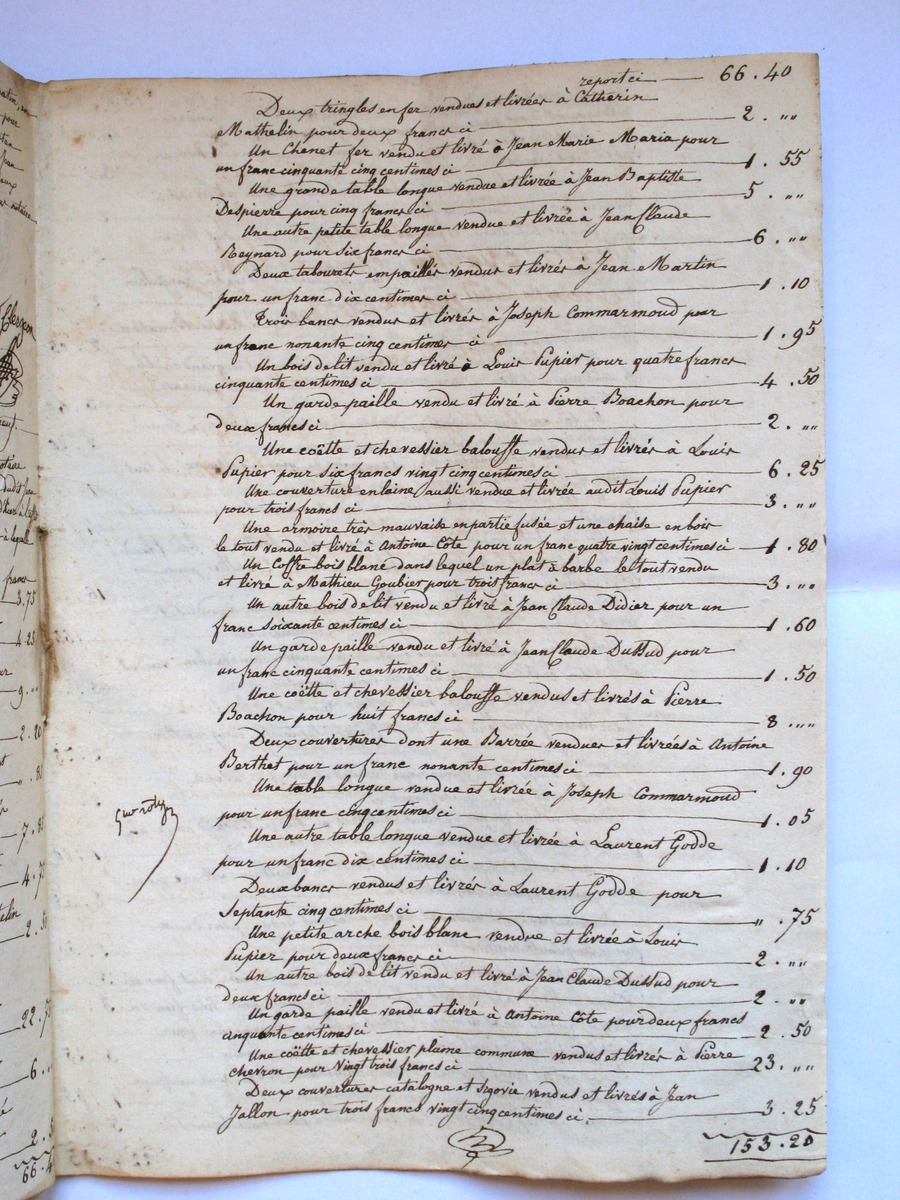 report ci — 66.40
Deux tringles en fer vendues et livrées à Catherin
Mathelin pour deux francs ci — 2. ""
Un Chenet fer vendu et livré à Jean Marie Maria pour
un franc cinquante cinq centimes ci — 1.55
Une grande table longue vendue et livrée à Jean Baptiste
Despierre pour cinq francs ci — 5. ""
Une autre petite table longue vendue et livrée à Jean Claude
Reynard pour six francs ci — 6. ""
Deux tabourets empaillés vendus et livrés à Jean Martin
pour un franc dix centimes ci — 1.10
Trois bancs vendus et livrés à Joseph Commarmoud pour
un franc nonante cinq centimes ci — 1.95
Un bois de lit vendu et livré à Louis Pupier pour quatre francs
cinquante centimes ci — 4.50
Un garde paille vendu et livré à Pierre Boachon pour
deux francs ci — 2. ""
Une coëtte et chevessier balouffe vendus et livrés à Louis
Pupier pour six francs vingt cinq centimes ci — 6.25
Une couverture en laine aussi vendue et livrée audit Louis Pupier
pour trois francs ci — 3. ""
Une armoire très mauvaise en partie fusée et une chaise en bois
le tout vendu et livré à Antoine Côte pour un franc quatre vingt centimes ci — 1.80
Un Coffre bois blanc dans lequel un plat à barbe le tout vendu
et livré à Mathieu Goubier pour trois francs ci — 3. ""
Un autre bois de lit vendu et livré à Jean Claude Didier pour un
franc soixante centimes ci — 1.60
Un garde paille vendu et livré à Jean Claude Dussud pour
un franc cinquante centimes ci — 1.50
Une coëtte et chevessier balouffe vendus et livrés à Pierre
Boachon pour huit francs ci — 8. ""
Deux couvertures dont une Barrée vendues et livrées à Antoine
Berthet pour un franc nonante centimes ci — 1.90
Une table longue vendue et livrée à Joseph Commarmoud
pour un franc cinq centimes ci — 1.05
Une autre table longue vendue et livrée à Laurent Godde
pour un franc dix centimes ci — 1.10
Deux bancs vendus et livrés à Laurent Godde pour
Septante cinq centimes ci — ".75
Une petite arche bois blanc vendue et livrée à Louis
Pupier pour deux francs ci — 2. ""
Un autre bois de lit vendu et livré à Jean Claude Dussud pour
deux francs ci — 2. ""
Un garde paille vendu et livré à Antoine Côte pour deux francs
cinquante centimes ci — 2.50
Une coëtte et chevessier plume commune vendus et livrés à Pierre
chevron pour vingt trois francs ci — 23. ""
Deux couvertures catalogne et Segovie vendus et livrés à Jean
Jallon pour trois francs vingt cinq centimes ci — 3.25
153.20